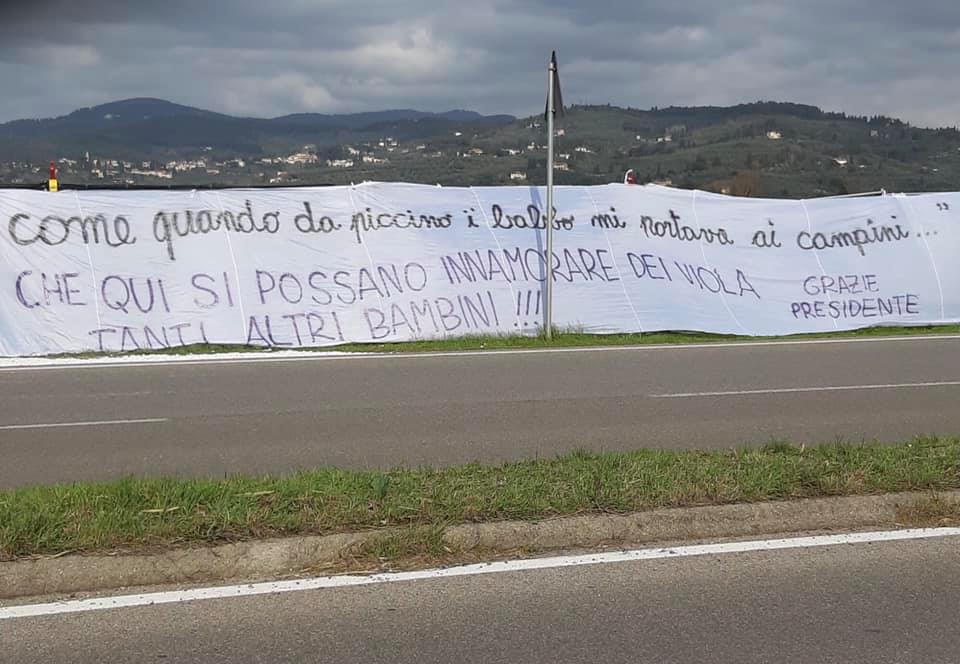 come quando da piccino i babbo mi portava ai campini..."
CHE QUI SI POSSANO INNAMORARE DEI VIOLA
TANTI ALTRI BAMBINI !!!
GRAZIE
PRESIDENTE